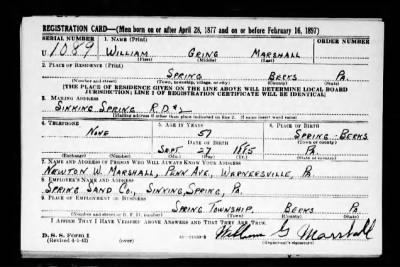 REGISTRATION CARD—(Men born on or after April 28, 1877 and on or before February 16, 1897)
SERIAL NUMBER 1. NAME (Print) ORDER NUMBER
U 1089 WILLIAM GRING MARSHALL
(First) (Middle) (Last)
2. PLACE OF RESIDENCE (Print)
SPRING BERKS PA.
(Number and street) (Town, township, village, or city) (County) (State)
[THE PLACE OF RESIDENCE GIVEN ON THE LINE ABOVE WILL DETERMINE LOCAL BOARD
JURISDICTION; LINE 2 OF REGISTRATION CERTIFICATE WILL BE IDENTICAL]
3. MAILING ADDRESS
SINKING SPRING R.D.#2
[Mailing address if other than place indicated on line 2. If same insert word same]
4. TELEPHONE 5. AGE IN YEARS 6. PLACE OF BIRTH
NONE 57 SPRING-BERKS
DATE OF BIRTH (Town or county)
SEPT. 27 1885 PA.
(Exchange) (Number) (Mo.) (Day) (Yr.) (State or country)
7. NAME AND ADDRESS OF PERSON WHO WILL ALWAYS KNOW YOUR ADDRESS
NEWTON W. MARSHALL, PENN AVE, WERNERSVILLE, PA.
8. EMPLOYER'S NAME AND ADDRESS
SPRING SAND CO., SINKING SPRING, PA.
9. PLACE OF EMPLOYMENT OR BUSINESS
SPRING TOWNSHIP, BERKS PA.
(Number and street or R. F. D. number) (Town) (County) (State)
I AFFIRM THAT I HAVE VERIFIED ABOVE ANSWERS AND THAT THEY ARE TRUE.
D. S. S. Form 1
(Revised 4-1-42) (over) William G Marshall